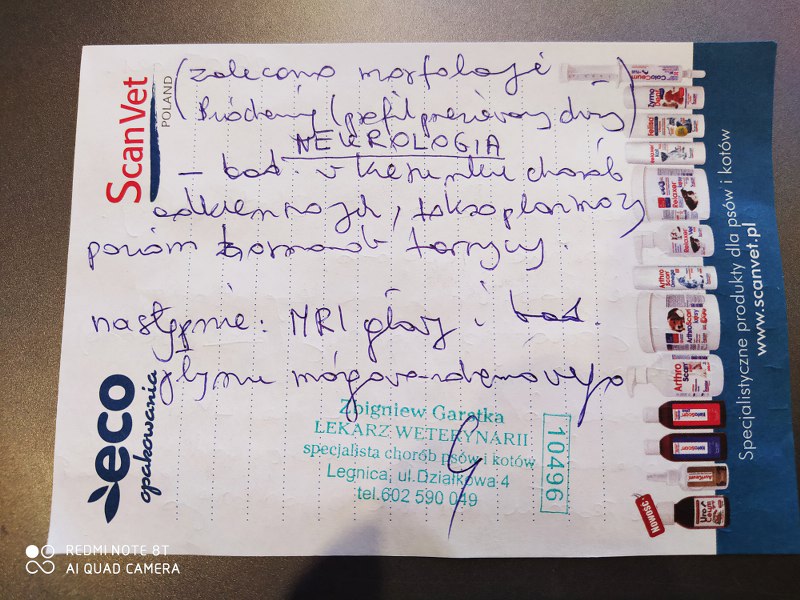 (zalecono morfologię
Biochemię (profil nerkowy duży)
NEUROLOGIA
- bad. w kierunku chorób
odkleszczowych, toksoplazmozy
poziom hormonów tarczycy.
następnie: MRI głowy i bad.
płynu mózgowo-rdzeniowego
Zbigniew Garatka
LEKARZ WETERYNARII
specjalista chorób psów i kotów
Legnica, ul.Działkowa 4
tel.602 590 049
10496
ScanVet
POLAND
eco
opakowania
Specjalistyczne produkty dla psów i kotów
www.scanvet.pl
Nowość
REDMI NOTE 8T
AI QUAD CAMERA